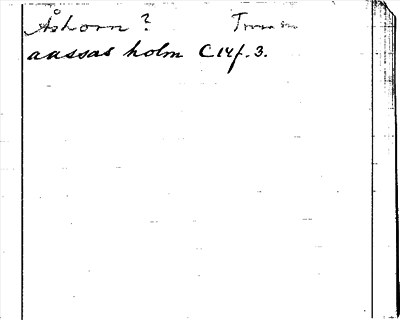 Åshorn ?
aassas holm C14f. 3.